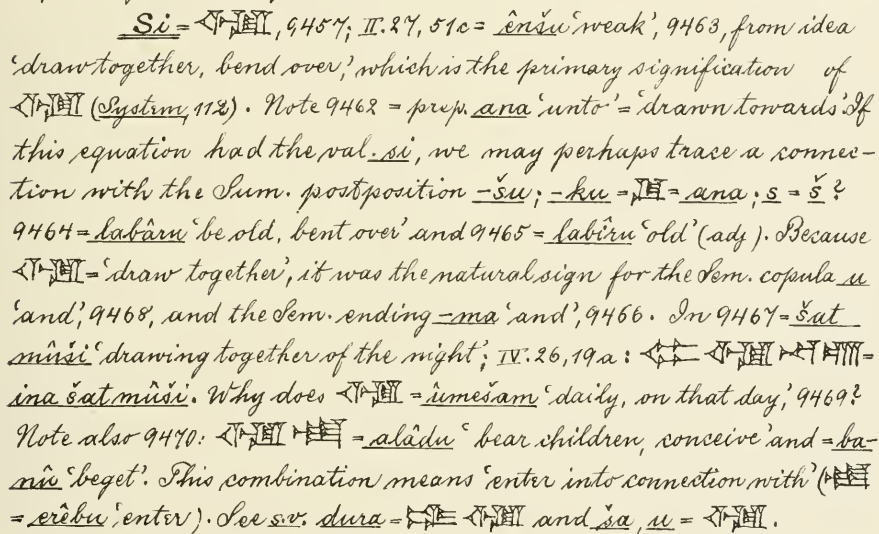 Si = 𒅇, 9457; II.27, 51c = ênšu 'weak', 9463, from idea
'draw together, bend over,' which is the primary signification of
𒅇 (System, 112). Note 9462 = prep. ana 'unto' = 'drawn towards'. If
this equation had the val. si, we may perhaps trace a connec-
tion with the Sum. postposition -šu; -ku = = ana; s = š?
9464 = labâru 'be old, bent over' and 9465 = labîru 'old' (adj). Because
𒅇 = 'draw together', it was the natural sign for the Sem. copula u
'and', 9468, and the Sem. ending -ma 'and', 9466. In 9467 = šat
mûši 'drawing together of the night'; IV.26, 19a: 𒅇 =
ina šat mûši. Why does 𒅇 = ûmešam 'daily, on that day,' 9469?
Note also 9470: 𒅇 𒌅 = alâdu 'bear children, conceive' and = ba-
nû 'beget'. This combination means 'enter into connection with' (𒌅
= erêbu 'enter). See s.v. dura = 𒅇 and ša, u = 𒅇.